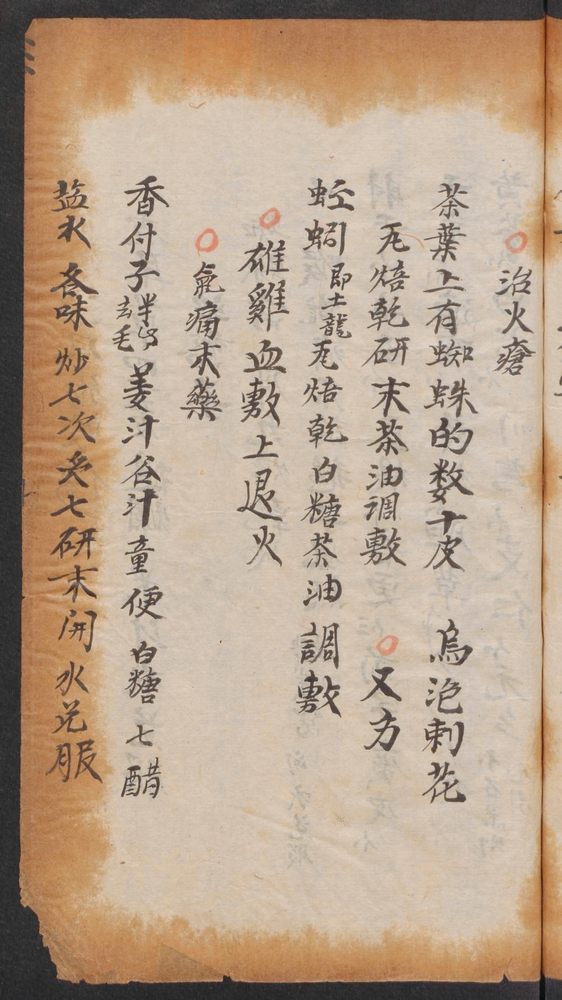 ○治火瘡
茶葉上有蜘蛛的数十皮　烏泡刺花
瓦焙乾研末茶油调敷　○又方
蚯蚓即土龍瓦焙乾白糖茶油調敷
○雄雞血敷上退火
○氣痛末藥
香付子半斤去毛姜汁谷汁童便白糖七醋
盐水各味炒七次炙七研末開水兑服